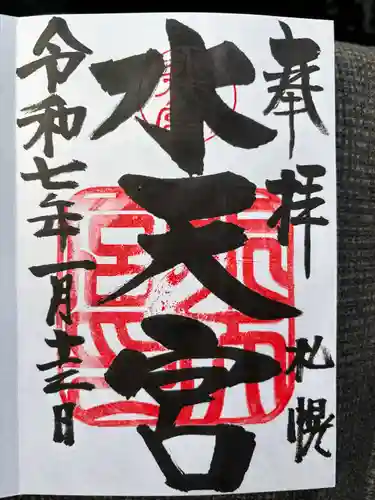 奉拝
札幌
水天宮
令和七年一月十二日